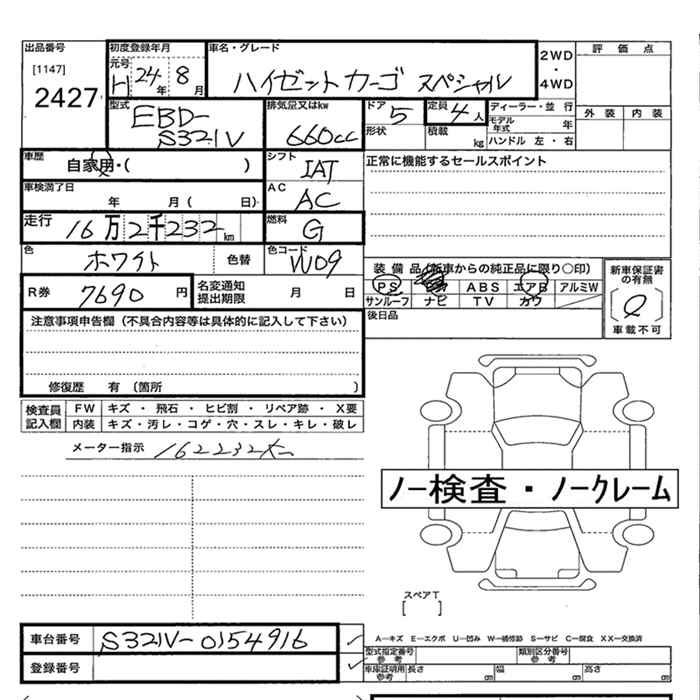 出品番号
[1147]
2427
初度登録年月
元号
H 24年 8月
車名・グレード
ハイゼットカーゴ スペシャル
2WD
・
4WD
評価点
外装 内装
型式
EBD-
S321V
排気量又はkw
660cc
ドア 5
形状
定員 4人
積載 kg
ディーラー・並行
モデル年式 年
ハンドル 左・右
車歴
自家用・( )
シフト
IAT
正常に機能するセールスポイント
車検満了日
年 月( 日)
AC
AC
走行 16万2千232km
燃料
G
色
ホワイト
色替
色コード
W09
装備品(新車からの純正品に限り○印)
PS ABS エアB アルミW
サンルーフ ナビ TV カワ
新車保証書の有無
車載不可
R券 7690円
名変通知提出期限 月 日
後日品
注意事項申告欄(不具合内容等は具体的に記入して下さい)
修復歴 有(箇所 )
検査員記入欄
FW キズ・飛石・ヒビ割・リペア跡・X要
内装 キズ・汚レ・コゲ・穴・スレ・キレ・破レ
メーター指示 162232K
ノー検査・ノークレーム
スペアT
[ ]
車台番号 S321V-0154916
登録番号
A-キズ E-エクボ U-凹み W-補修跡 S-サビ C-腐食 XX-交換済
型式指定番号参考
類別区分番号参考
車庫証明用参考 長さ cm 幅 cm 高さ cm